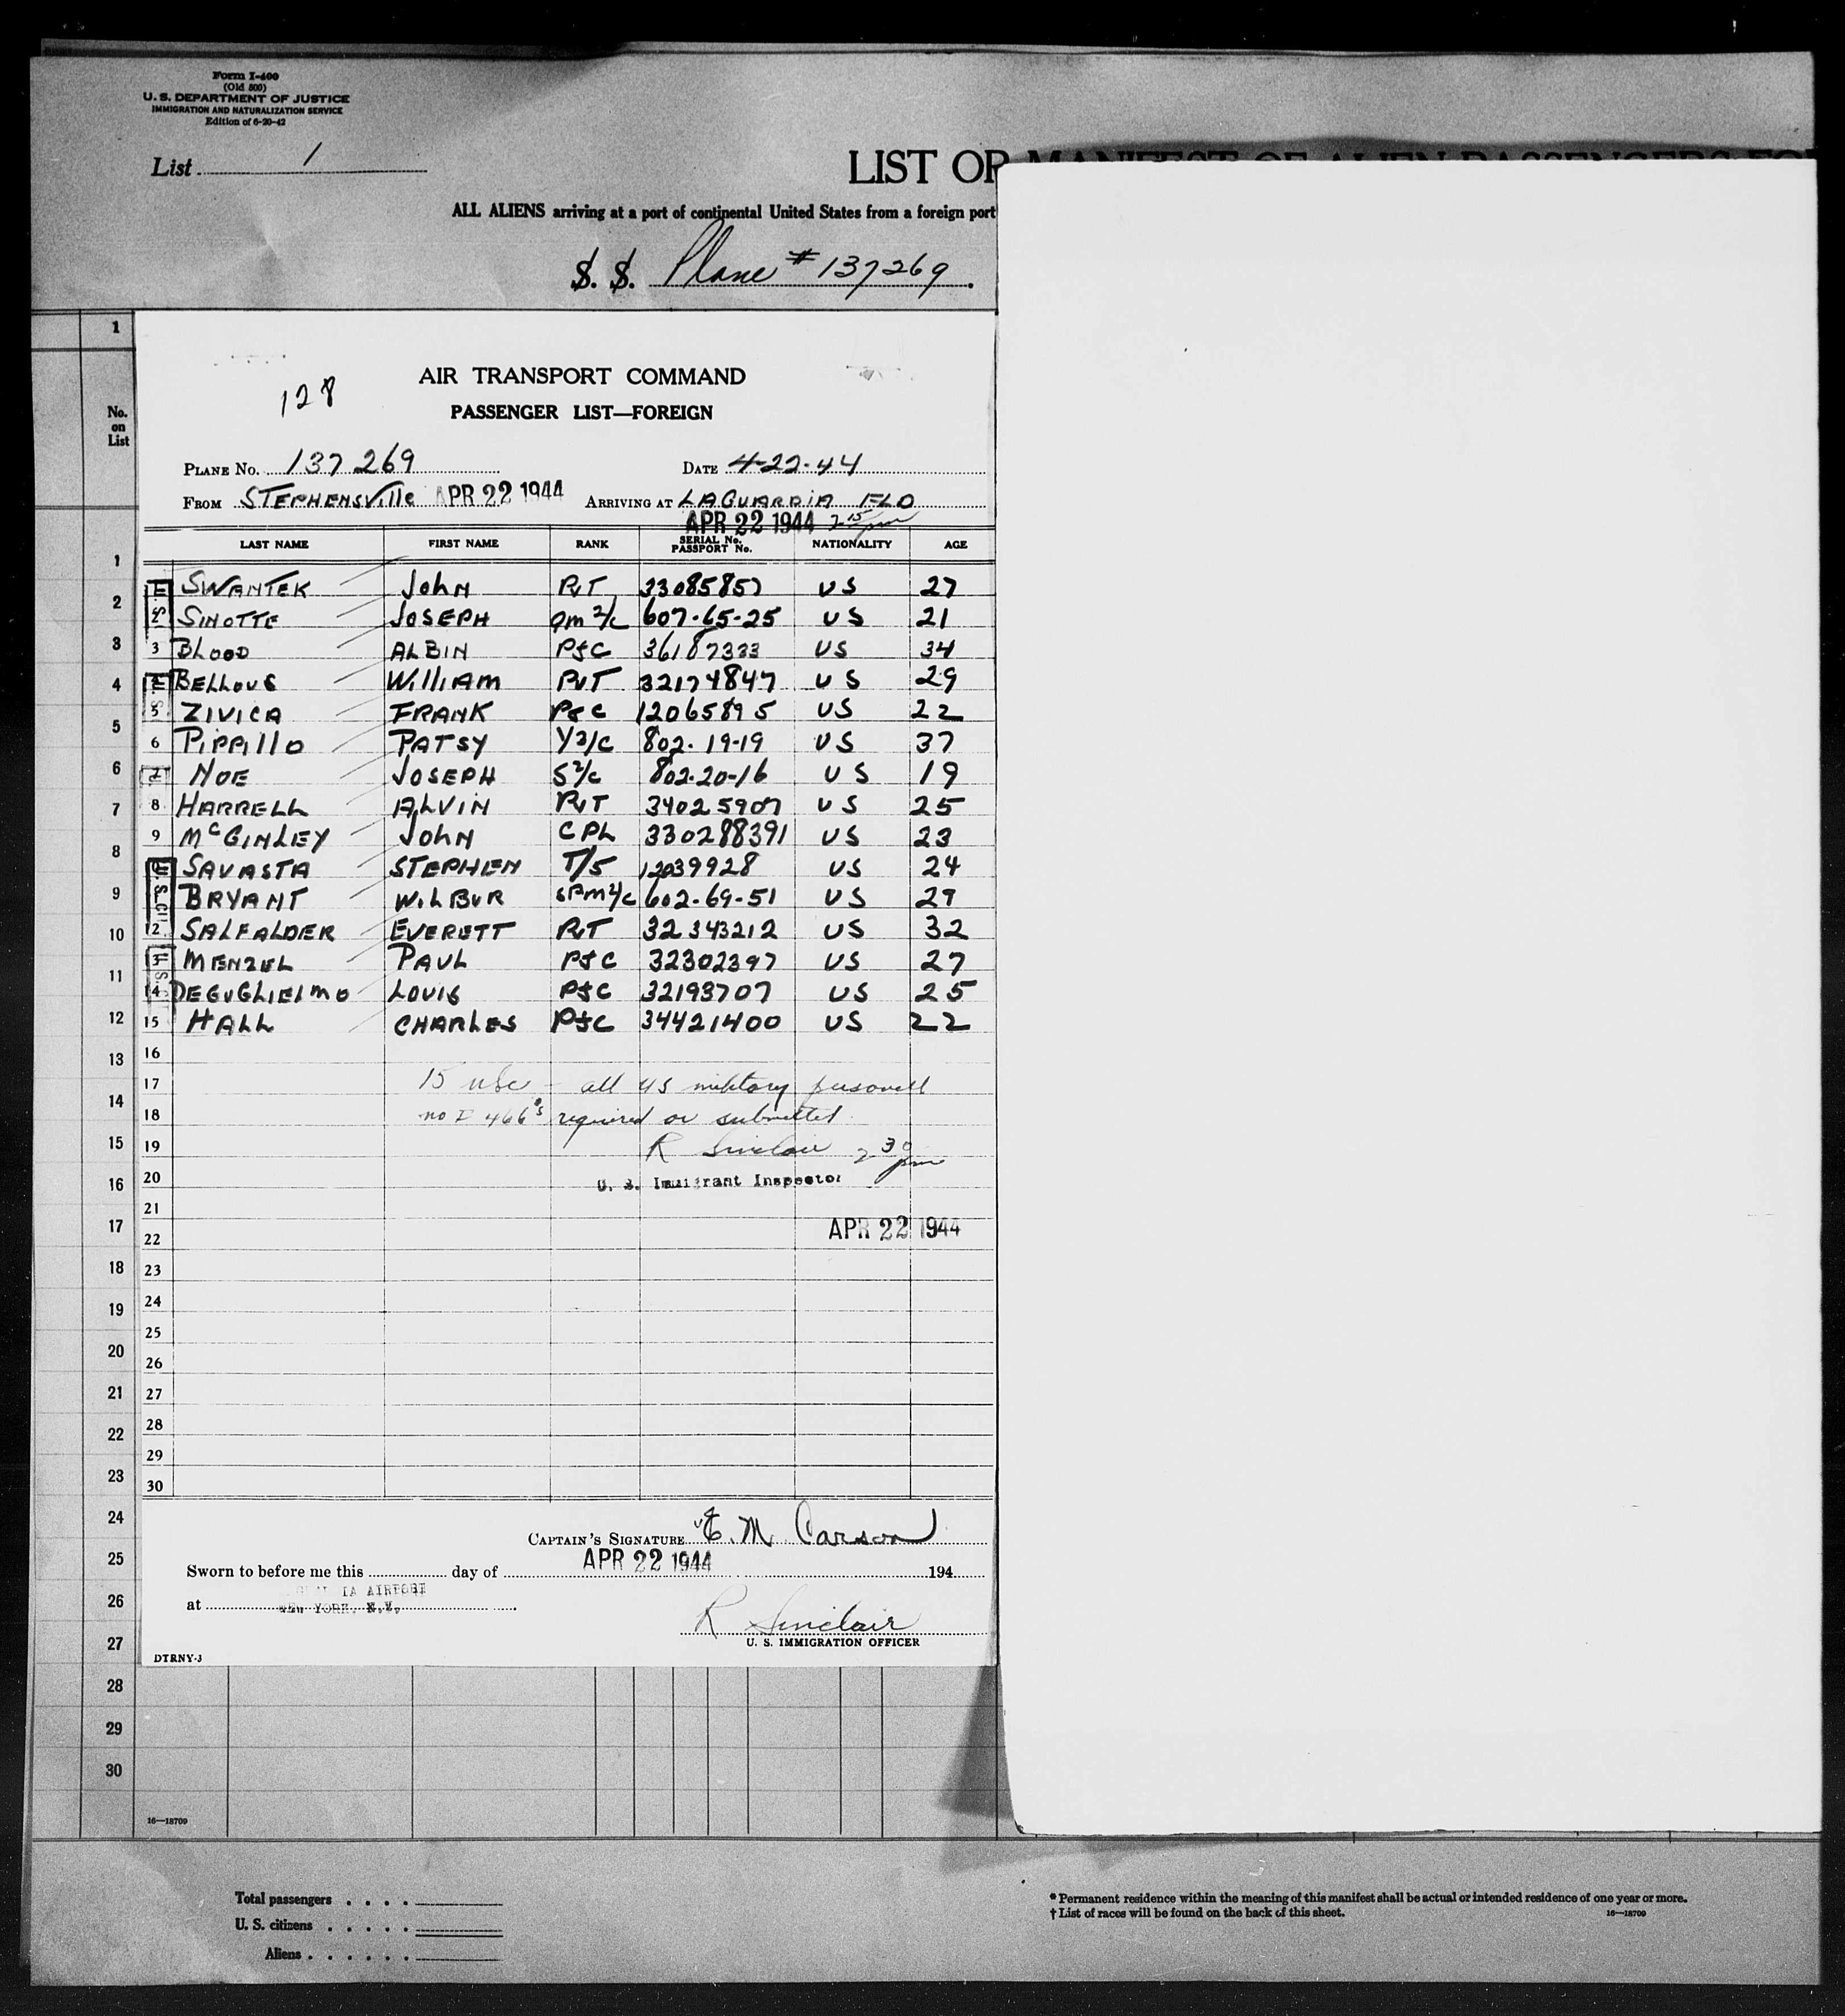 Form I-400
(Old 500)
U. S. DEPARTMENT OF JUSTICE
IMMIGRATION AND NATURALIZATION SERVICE
Edition of 6-20-42
List 1
LIST OR MANIFEST OF ALIEN PASSENGERS FO
ALL ALIENS arriving at a port of continental United States from a foreign port
S. S. Plane # 137269
1
No. on List
128
AIR TRANSPORT COMMAND
PASSENGER LIST—FOREIGN
PLANE No. 137269 DATE 4-22-44
FROM STEPHENSVIlle APR 22 1944 ARRIVING AT LAGUARDIA FLD
APR 22 1944 2 15 pm
LAST NAME FIRST NAME RANK SERIAL No. PASSPORT No. NATIONALITY AGE
SWANTEK JohN PvT 33085857 US 27
SINOTTE JOSEPH 607-65-25 US 21
3 BLOOD ALBIN PFC 36187333 US 34
BELLOUS WillIAM PvT 32174847 US 29
5 ZIVICA FRANK PFC 12065895 US 22
6 PIPPIllO PATSY Y3/C 802-19-19 US 37
7 NOE JOSEPH S2/c 802-20-16 US 19
8 HARRELL ALVIN PvT 34025907 US 25
9 McGINLEY JOHN CPL 330288391 US 23
SAVASTA STEPHEN T/5 12039928 US 24
BRYANT WiLBUR 602-69-51 US 29
12 SALFALDER EVERETT PvT 32343212 US 32
13 MENZEL PAUL PFC 32302397 US 27
14 DEGUGLIELMO LOUIS PFC 32193707 US 25
15 HALL CHARLES PFC 34421400 US 22
16
17 15 USC - all US military personell
18 no I 466's required or submitted
19 R Sinclair 2 30 pm
20 U. S. Immigrant Inspector
21
22 APR 22 1944
23
24
25
26
27
28
29
30
CAPTAIN'S SIGNATURE E. M. Carson
APR 22 1944
Sworn to before me this day of 194
IA AIRPORT
at NEW YORK, N.Y.
R Sinclair
U. S. IMMIGRATION OFFICER
DTRNY-J
1
2
3
4
5
6
7
8
9
10
11
12
13
14
15
16
17
18
19
20
21
22
23
24
25
26
27
28
29
30
16—18709
Total passengers
U. S. citizens
Aliens
* Permanent residence within the meaning of this manifest shall be actual or intended residence of one year or more.
† List of races will be found on the back of this sheet.
16—18709